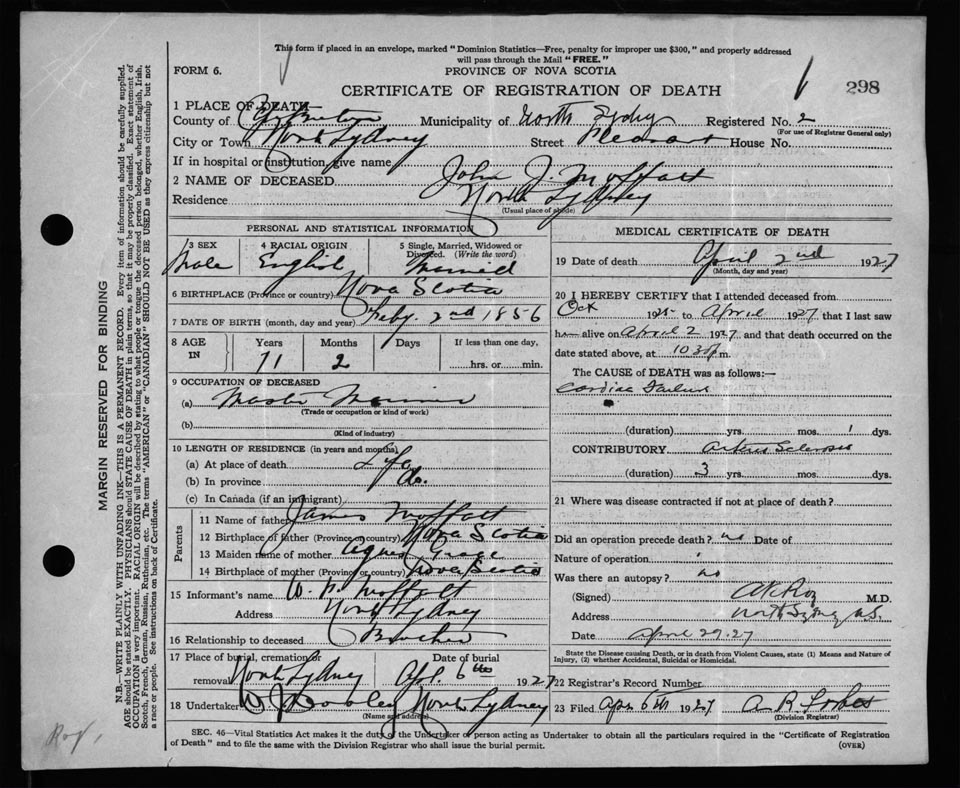 This form if placed in an envelope, marked "Dominion Statistics—Free, penalty for improper use $300," and properly addressed
will pass through the Mail "FREE."
FORM 6.
PROVINCE OF NOVA SCOTIA
CERTIFICATE OF REGISTRATION OF DEATH
298
1 PLACE OF DEATH—
County of Cape Breton Municipality of North Sydney Registered No. 2
(For use of Registrar General only)
City or Town North Sydney Street Pleasant House No.
If in hospital or institution, give name
2 NAME OF DECEASED John J. Moffatt
Residence North Sydney
(Usual place of abode)
PERSONAL AND STATISTICAL INFORMATION
3 SEX 4 RACIAL ORIGIN 5 Single, Married, Widowed or
Divorced. (Write the word)
Male English Married
6 BIRTHPLACE (Province or country) Nova Scotia
7 DATE OF BIRTH (month, day and year) Feby. 2nd 1856
8 AGE IN Years Months Days If less than one day,
71 2 hrs. or min.
9 OCCUPATION OF DECEASED
(a) Master Mariner
(Trade or occupation or kind of work)
(b)
(Kind of industry)
10 LENGTH OF RESIDENCE (in years and months)
(a) At place of death Life
(b) In province do.
(c) In Canada (if an immigrant)
Parents
11 Name of father James Moffatt
12 Birthplace of father (Province or country) Nova Scotia
13 Maiden name of mother Agnes Grace
14 Birthplace of mother (Province or country) Nova Scotia
15 Informant's name W. Moffatt
Address North Sydney
16 Relationship to deceased Brother
17 Place of burial, cremation or Date of burial
removal North Sydney Apl. 6th 1927
18 Undertaker North Sydney
(Name and address)
MEDICAL CERTIFICATE OF DEATH
19 Date of death April 2nd 1927
(Month, day and year)
20 I HEREBY CERTIFY that I attended deceased from
Oct 192 to April 1927 that I last saw
h alive on April 2 1927 and that death occurred on the
date stated above, at 10 30 P m.
The CAUSE of DEATH was as follows:—
Cardiac Failure
(duration) yrs. mos. 1 dys.
CONTRIBUTORY Arterio Sclerosis
(duration) 3 yrs. mos. dys.
21 Where was disease contracted if not at place of death?
Did an operation precede death? no Date of
Nature of operation
Was there an autopsy? no
(Signed) M.D.
Address North Sydney N.S.
Date April 29.27
State the Disease causing Death, or in death from Violent Causes, state (1) Means and Nature of
Injury, (2) whether Accidental, Suicidal or Homicidal.
22 Registrar's Record Number
23 Filed Apr 6th 1927 A. R. Forbes
(Division Registrar)
SEC. 46—Vital Statistics Act makes it the duty of the Undertaker or person acting as Undertaker to obtain all the particulars required in the "Certificate of Registration
of Death" and to file the same with the Division Registrar who shall issue the burial permit.
(OVER)
MARGIN RESERVED FOR BINDING
N.B.—WRITE PLAINLY WITH UNFADING INK—THIS IS A PERMANENT RECORD. Every item of information should be carefully supplied.
AGE should be stated EXACTLY. PHYSICIANS should STATE CAUSE OF DEATH in plain terms, so that it may be properly classified. Exact statement of
OCCUPATION is very important. RACIAL ORIGIN will be described by stating to what people or tongue the deceased person belonged, whether English, Irish,
Scotch, French, German, Russian, Ruthenian, etc. The terms "AMERICAN" or "CANADIAN" SHOULD NOT BE USED as they express citizenship but not
a race or people. See instructions on back of Certificate.